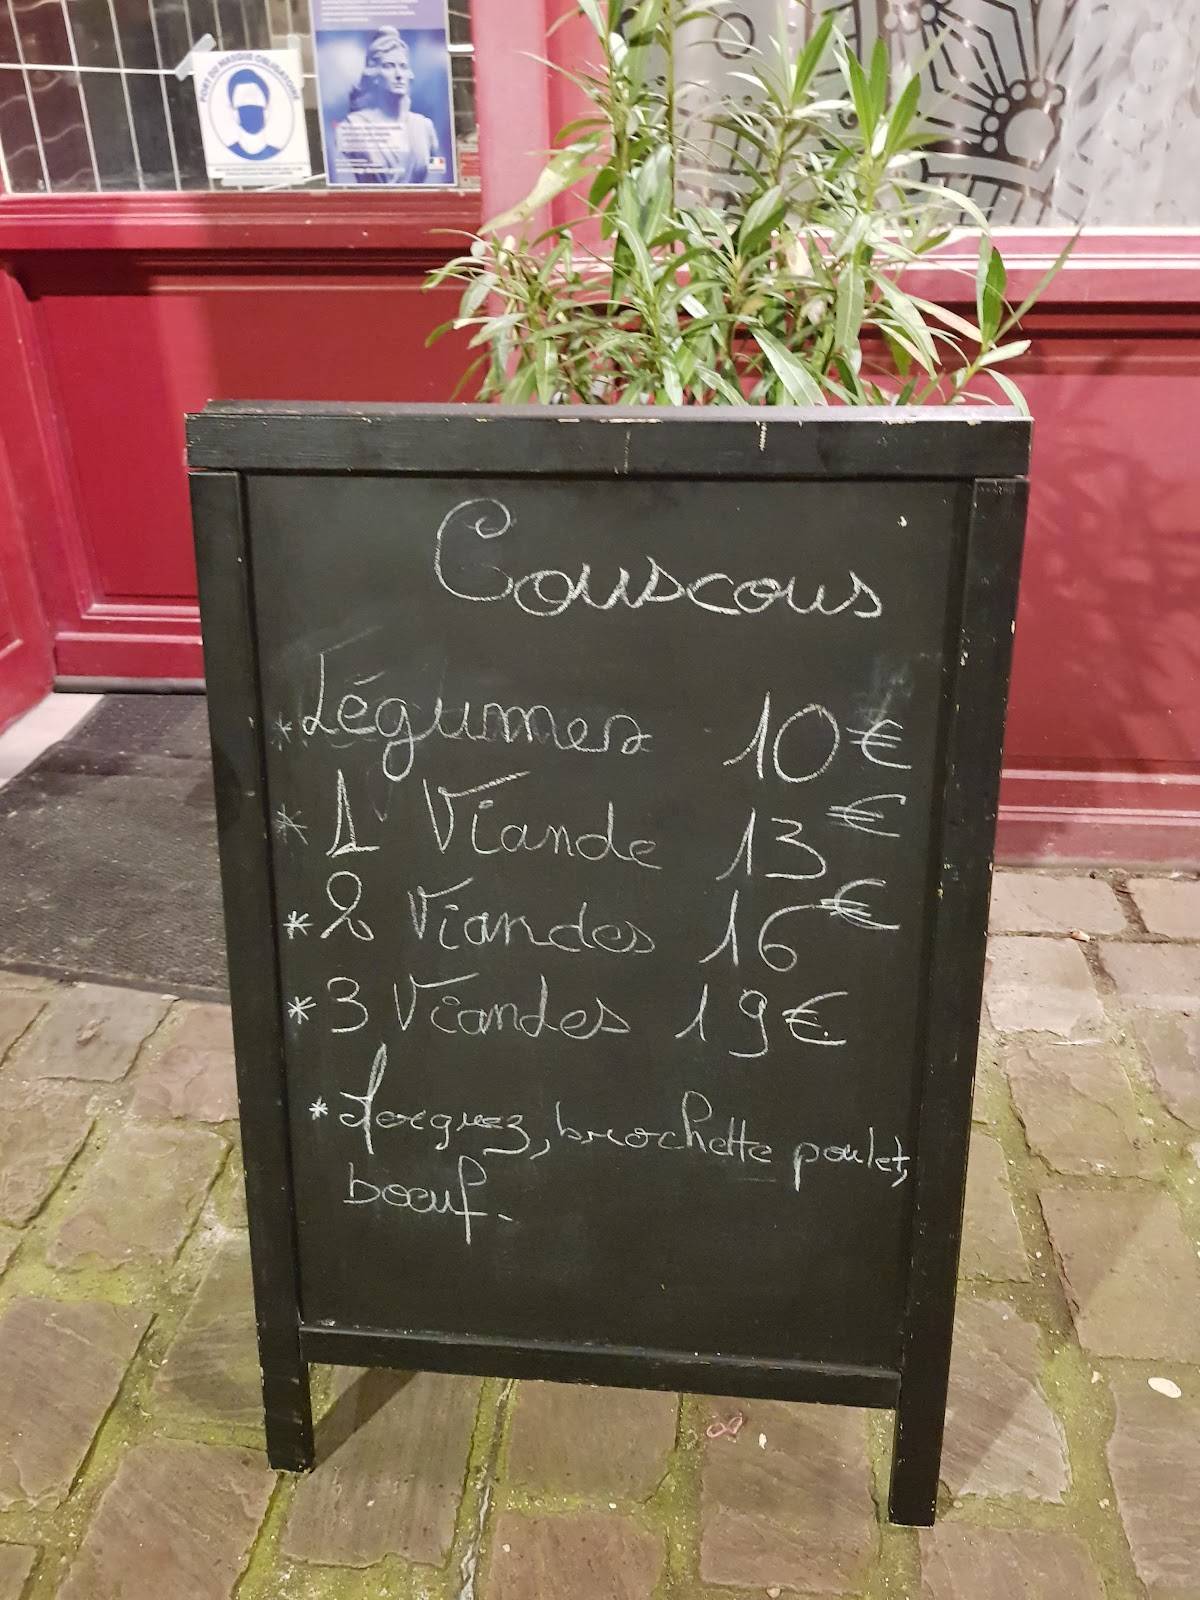 PORT DU MASQUE OBLIGATOIRE
Couscous
* Légumes 10€
* 1 Viande 13€
* 2 Viandes 16€
* 3 Viandes 19€
* Merguez, brochette poulet,
boeuf.